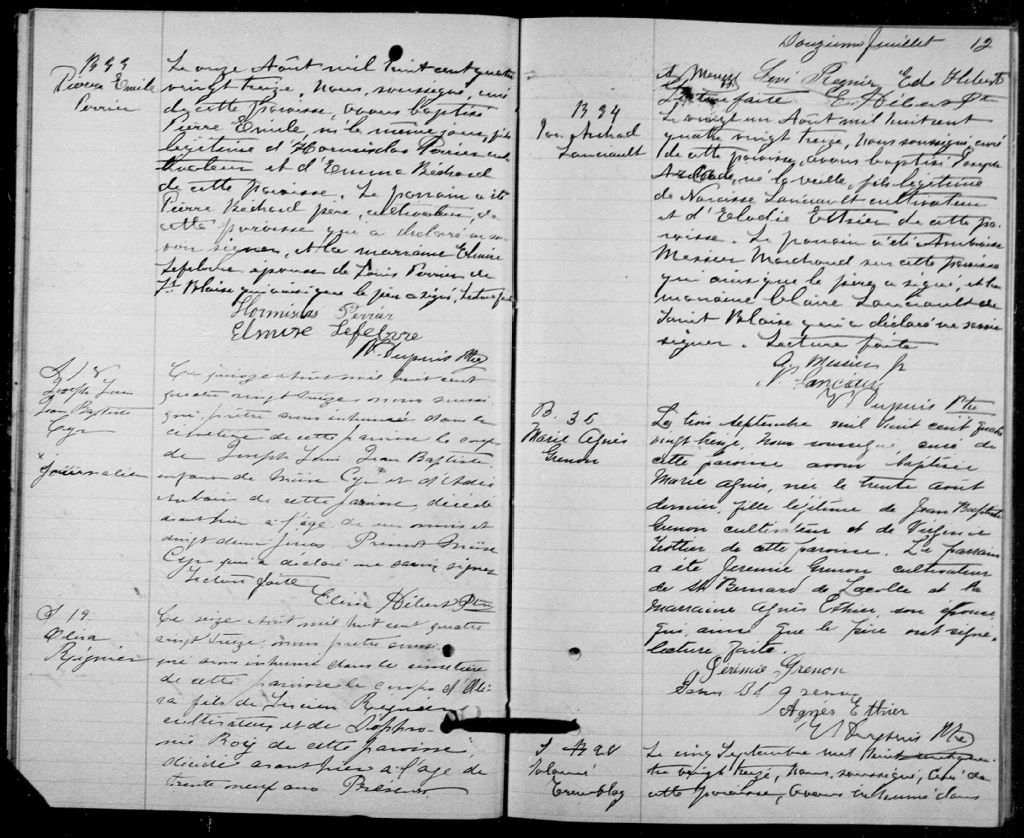 B 33
Pierre Emile
Perrier
Le onze Août mil huit cent quatre
vingt treize, Nous, soussigné, curé
de cette paroisse, avons baptisé
Pierre Emile, né le même jour, fils
légitime d'Hormisdas Perrier cul
tivateur et d'Emma Béchard
de cette paroisse. Le parrain a été
Pierre Béchard père, cultivateur, de
cette paroisse qui a déclaré ne sa
voir signer, et la marraine Elmire
Lefebvre épouse de Louis Perrier de
St Blaise qui ainsi que le père a signé, Lecture faite
Hormisdas Perrier
Elmire Lefebvre
Dupuis Ptre
S 18
Joseph Louis
Jean Baptiste
Cyr
journalier
Ce quinze août mil huit cent
quatre vingt treize nous soussi
gné prêtre avons inhumé dans le
cimetière de cette paroisse le corps
de Joseph Louis Jean Baptiste
enfant de Moïse Cyr et d'
de cette paroisse, décédé
avant hier à l'âge de un mois et
vingt deux jours. Présent Moïse
Cyr qui a déclaré ne savoir signer
Lecture faite
Hébert Ptre
S. 19.
Régnier
Ce seize Août mil huit cent quatre
vingt treize, nous prêtre soussi
gné avons inhumé dans le cimetière
de cette paroisse le corps d'
fils de Lucien Régnier
cultivateur et de Sophro
nie Roy de cette paroisse
décédé avant hier à l'âge de
trente neuf ans Présents
Douzième feuillet 12
Régnier Ed. Hébert
Lecture faite E. Hébert Ptre
B 34
Lancault
Le vingt un Août mil huit cent
quatre vingt treize, Nous soussigné, curé
de cette paroisse, avons baptisé Joseph
né la veille, fils légitime
de Narcisse Lancault cultivateur
et d'Elodie Ethier de cette pa
roisse. Le parrain a été Ambroise
Messier Marchand sur cette paroisse
qui ainsi que le père a signé, et la
marraine Claire Lancault de
Saint Blaise qui a déclaré ne savoir
signer. Lecture faite
A Messier Jr
Dupuis Ptre
B. 35
Marie Agnès
Grenon
Le trois septembre mil huit cent quatre
vingt treize, Nous soussigné, curé de
cette paroisse avons baptisé
Marie Agnès, née le trente août
dernier, fille légitime de Jean Baptiste
Grenon cultivateur et de Virginie
Trottier de cette paroisse. Le parrain
a été Jérémie Grenon cultivateur
de St Bernard de Lacolle et la
Marraine Agnès Ethier, son épouse
qui, ainsi que le père ont signé.
Lecture faite.
Jérémie Grenon
Jean Bt grenon
Agnès Ethier
Dupuis Ptre
S # 20
Salomé
Tremblay
Le cinq Septembre mil huit
vingt treize, Nous, soussigné, Curé de
cette paroisse, avons inhumé dans